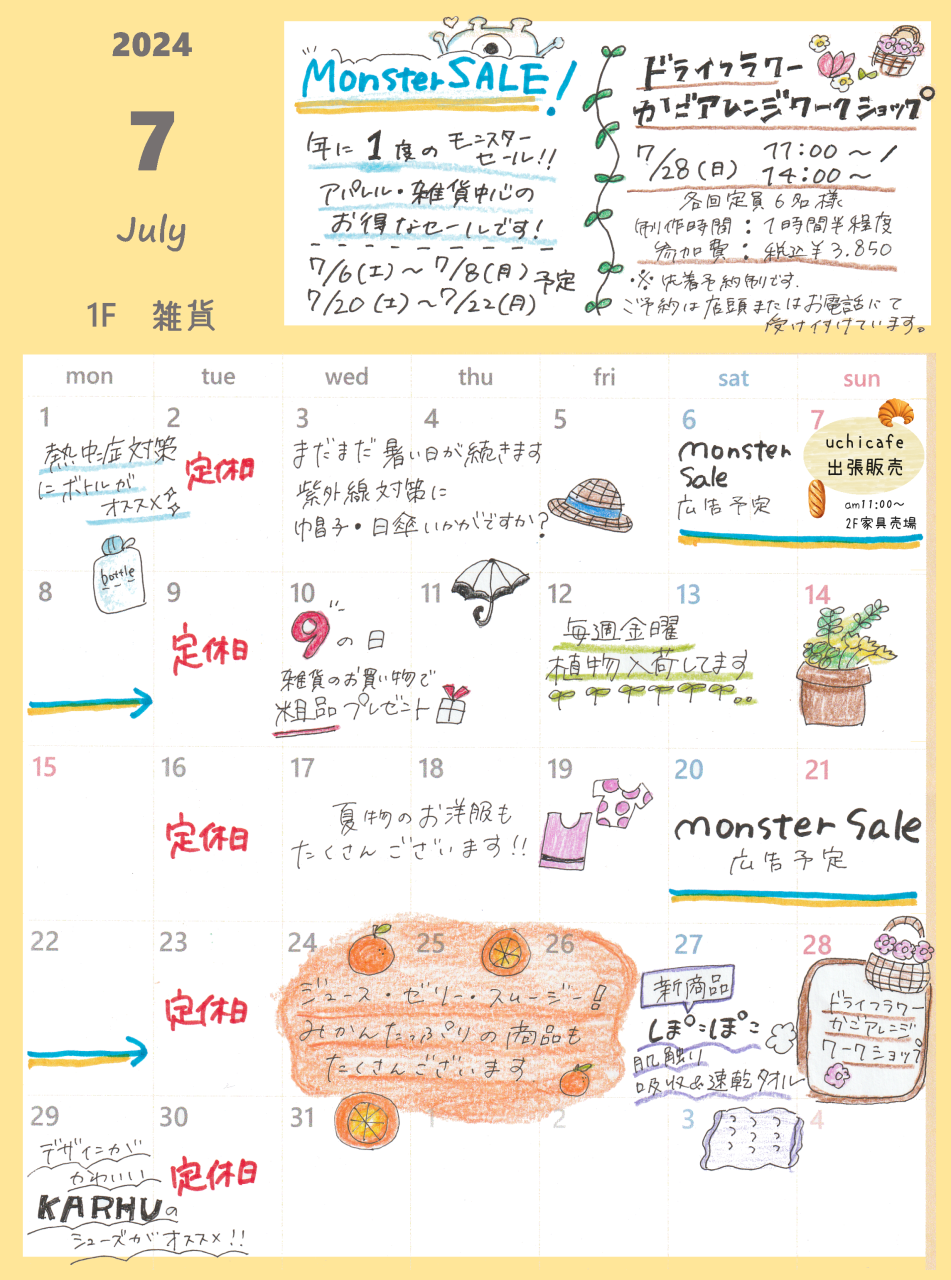 2024
7
July
1F 雑貨
MonsterSALE!
年に1度のモンスター
セール!!
アパレル・雑貨中心の
お得なセールです!
7/6(土)~7/8(月)予定
7/20(土)~7/22(月)
ドライフラワー
かごアレンジワークショップ
7/28(日) 11:00~/
14:00~
各回定員6名様
制作時間:1時間半程度
参加費:税込¥3.850
※先着予約制です.
ご予約は店頭またはお電話にて
受け付けています。
mon tue wed thu fri sat sun
1 2 3 4 5 6 7
熱中症対策
にボトルが
オススメ
bottle
定休日
まだまだ暑い日が続きます
紫外線対策に
帽子・日傘いかがですか?
monster
Sale
広告予定
uchicafe
出張販売
am11:00~
2F家具売場
8 9 10 11 12 13 14
定休日
9の日
雑貨のお買い物で
粗品プレゼント
毎週金曜
植物入荷してます
15 16 17 18 19 20 21
定休日
夏物のお洋服も
たくさんございます!!
monster Sale
広告予定
22 23 24 25 26 27 28
定休日
ジュース・ゼリー・スムージー!
みかんたっぷりの商品も
たくさんございます
新商品
しぽこぽこ
肌触り
吸収&速乾タオル
ドライフラワー
かごアレンジ
ワークショップ
29 30 31 1 2 3 4
デザインが
かわいい
KARHUの
シューズがオススメ!!
定休日